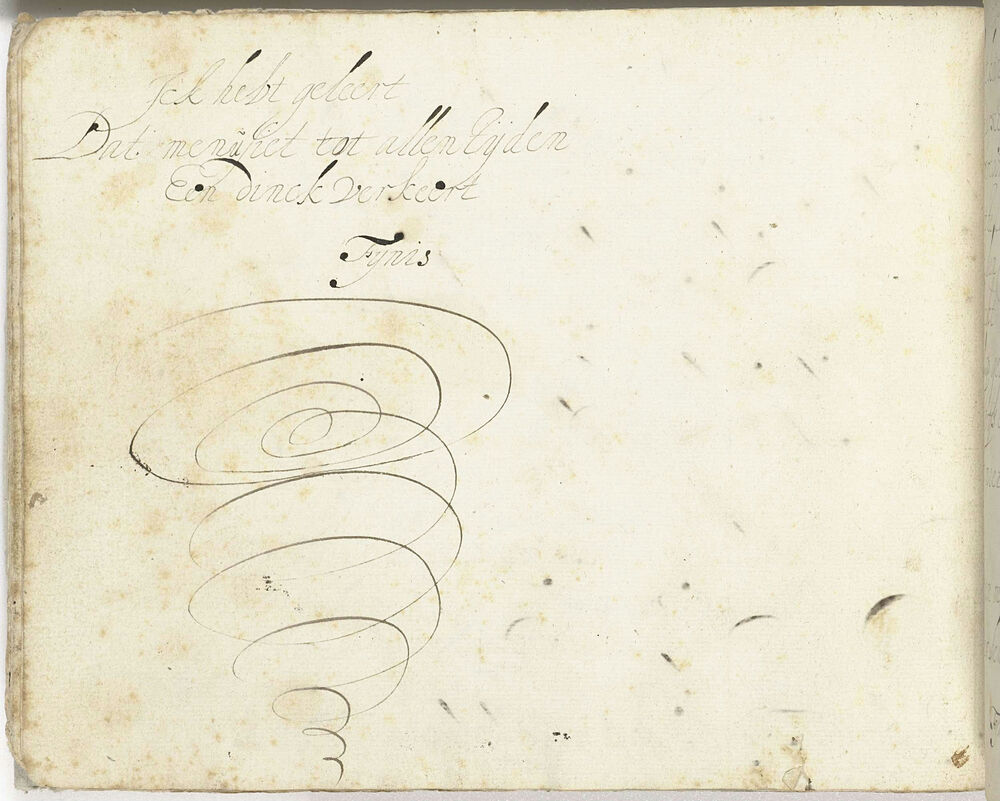 Ick hebt geleert
Dat men siet tot allen tijden
Een dinck verkeert
Fynis